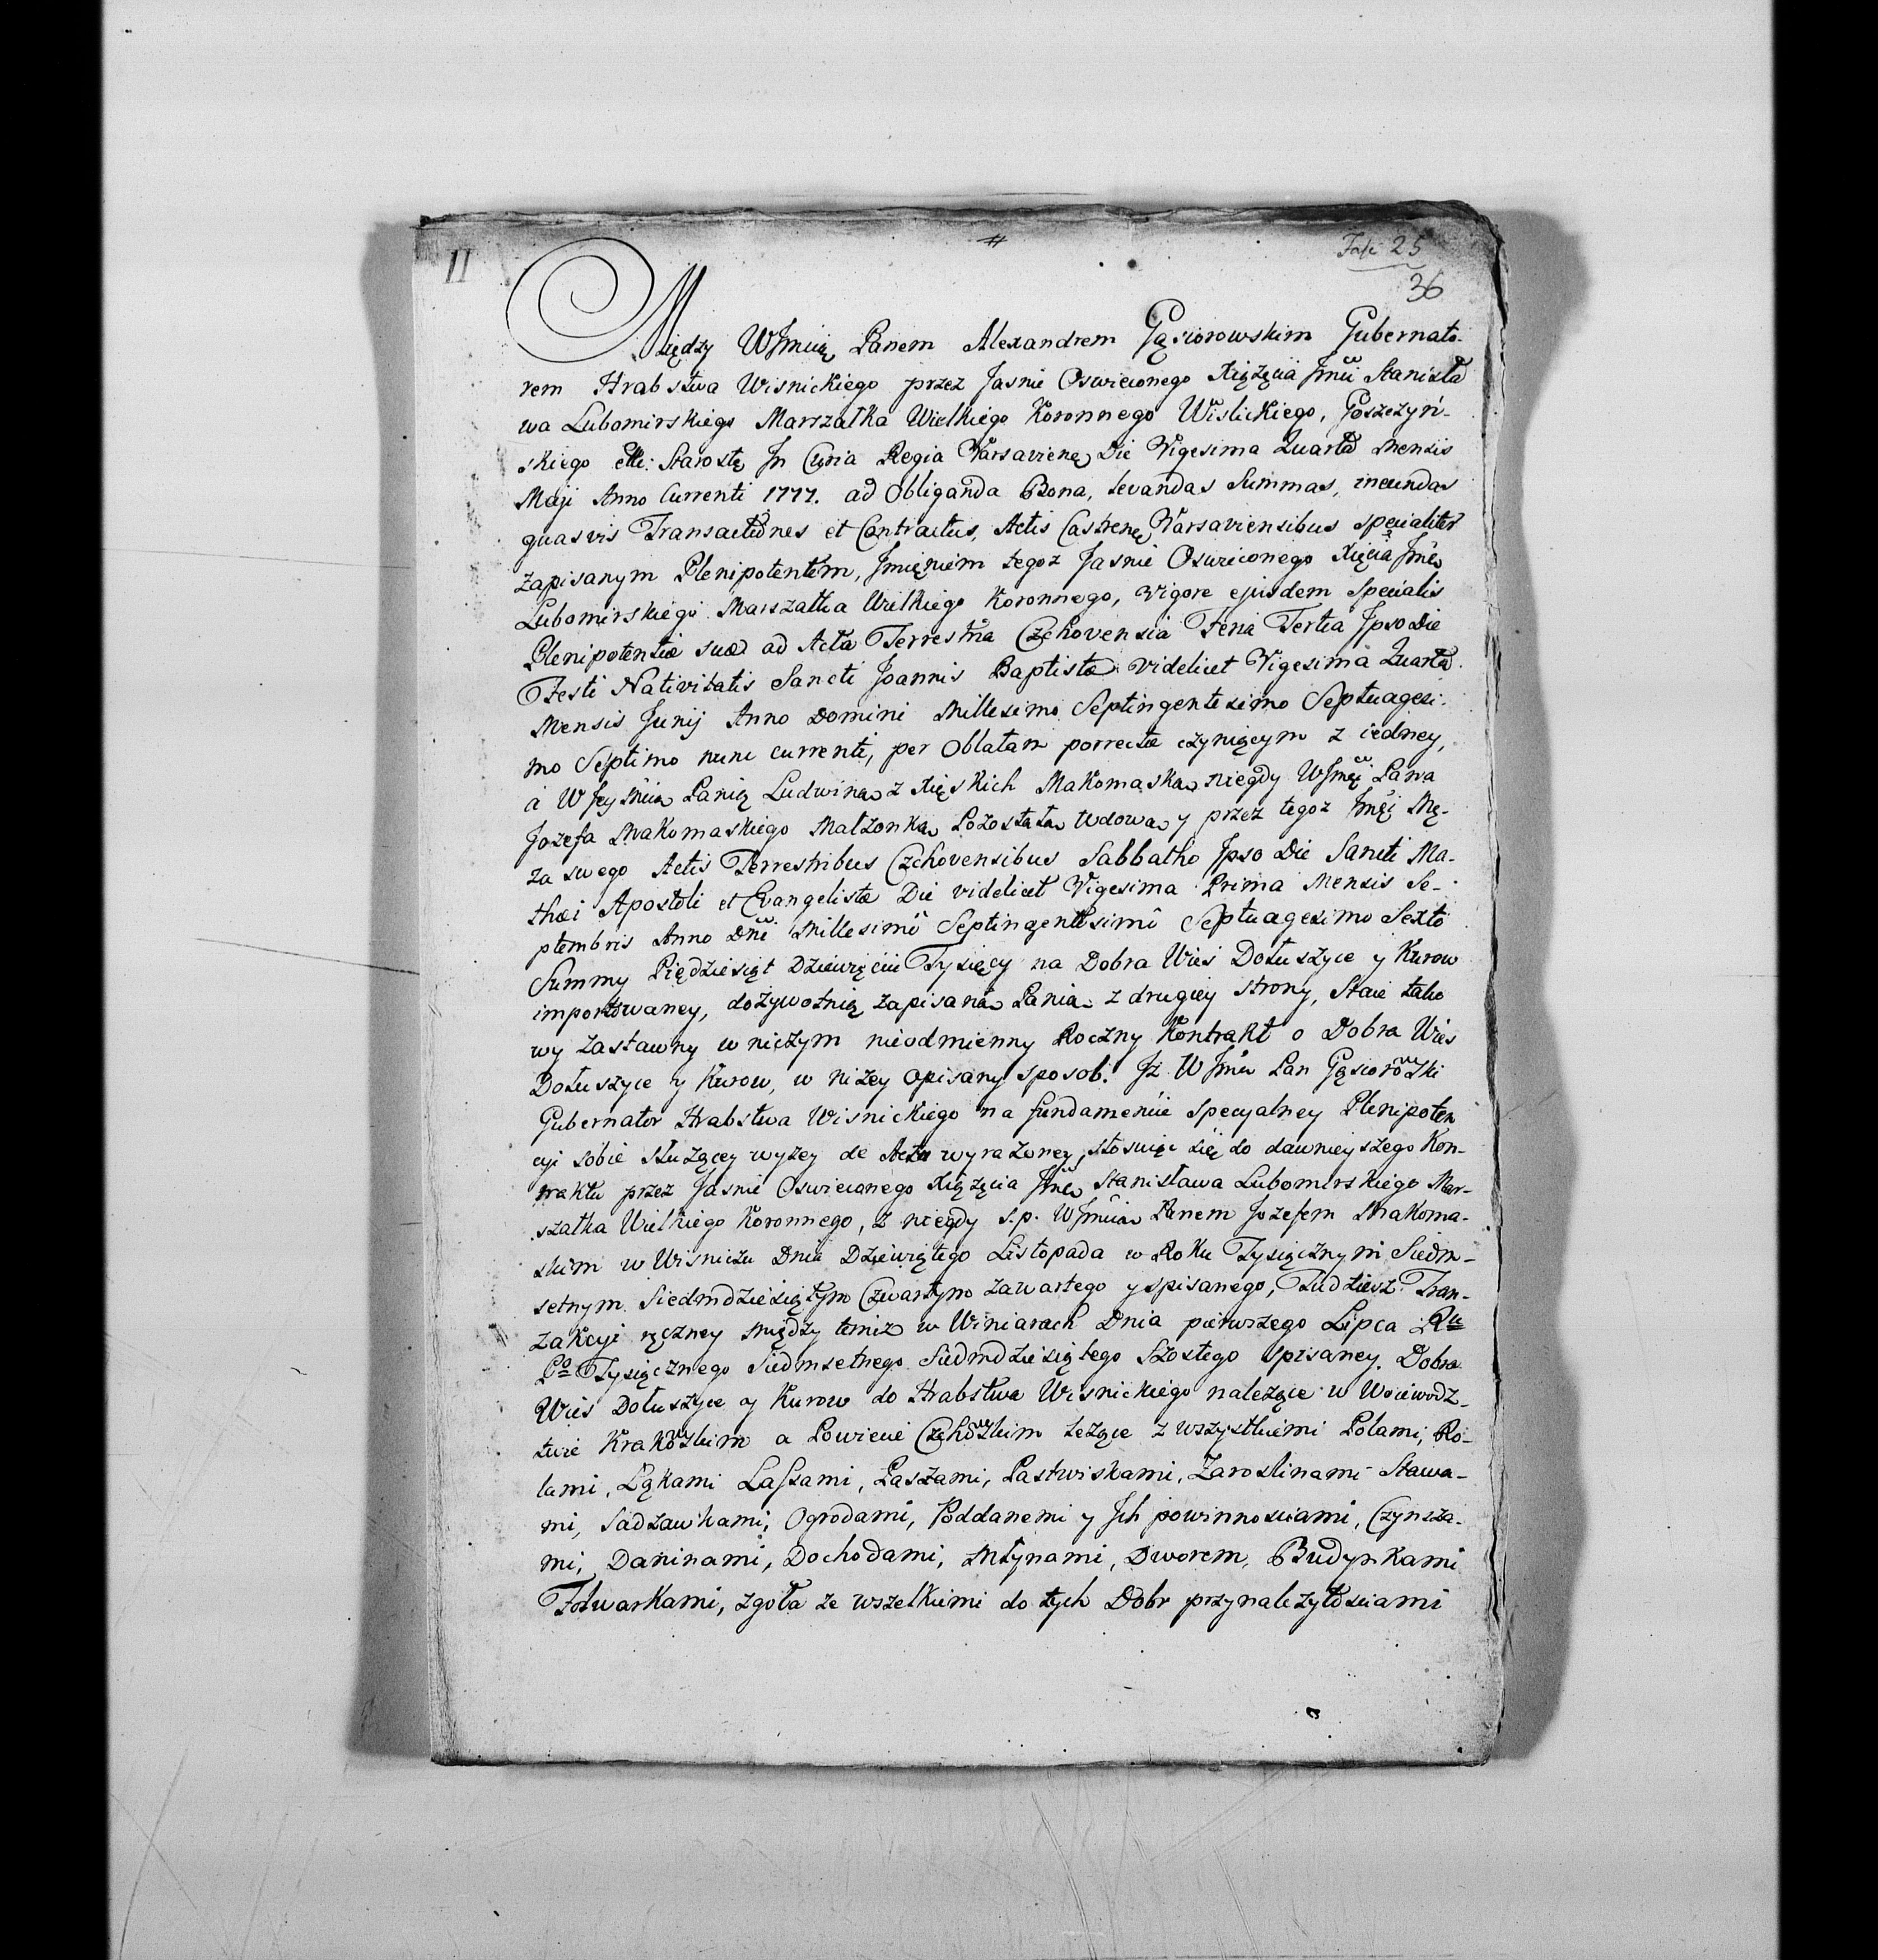 II
#
Fasc 25
36
Między WJmcią Panem Alexandrem Gąsiorowskim Gubernato-
rem Hrabstwa Wisnickiego przez Jasnie Oswieconego Xiążęcia Jmci Stanisła
wa Lubomirskiego Marszałka Wielkiego Koronnego Wislickiego, Goszczyń-
skiego etc: Starostę In Curia Regia Varsavien Die Vigesima Quarta Mensis
Maji Anno Currenti 1777. ad Obliganda Bona, Levandas Summas, ineundas
quasvis Transactiones et Contractus, Actis Castren Varsaviensibus specialiter
zapisanym Plenipotentem, Jmieniem tegoz Jasnie Oswieconego Xięcia Jmci
Lubomirskiego Marszałka Wielkiego Koronnego, Vigore ejusdem Specialis
Plenipotentiæ suæ ad Acta Terrestria Czchovensia Feria Tertia Ipso Die
Festi Nativitatis Sancti Joannis Baptistæ videlicet Vigesima Quarta
Mensis Junij Anno Domini Millesimo Septingentesimo Septuagesi-
mo Septimo nunc currenti, per Oblatam porrectæ czyniącym z iedney,
a WJeymcią Panią Ludwiną z Xięskich Makomaską niegdy WJmci Pana
Jozefa Makomaskiego Małzonką Pozostałą Wdową y przez tegoz Jmci Mę-
za swego Actis Terrestribus Czchovensibus Sabbatho Ipso Die Sancti Ma-
thæi Apostoli et Evangelistæ Die videlicet Vigesima Prima Mensis Se-
ptembris Anno Dni Millesimo Septingentesimo Septuagesimo Sexto
Summy Piędziesiąt Dziewięciu Tysięcy na Dobra Wieś Dołuszyce y Kurow
importowaney, dożywotnią zapisaną Panią z drugiey strony, Staie tako
wy Zastawny w niczym nieodmienny Roczny Kontrakt o Dobra Wieś
Dołuszyce y Kurow, w niżey opisany sposob. Iż WJmć Pan Gąsiorowski
Gubernator Hrabstwa Wisnickiego na fundamencie specyalney Plenipoten
cyi sobie służącey wyżey de Actu wyrażoney, stosuiąc się do dawnieyszego Kon-
traktu przez Jasnie Oswieconego Xiążęcia Jmci Stanisława Lubomirskiego Mar-
szałka Wielkiego Koronnego, z niegdy s.p. WJmcią Panem Jozefem Makoma-
skim w Wisniczu Dnia Dziewiątego Listopada w Roku Tysiącznym Siedm-
setnym Siedmdziesiątym Czwartym zawartego y spisanego, Tudziesz Tran-
zakcyi ręczney między temiz w Winiarach Dnia pierwszego Lipca Ru
Po Tysiącznego Siedmsetnego Siedmdziesiątego Szostego spisaney. Dobra
Wieś Dołuszyce y Kurow do Hrabstwa Wisnickiego należące w Woiewodz-
twie Krakowskim a Powiecie Czchowskim leżące z wszystkiemi Polami, Ro-
lami, Łąkami Lassami, Paszami, Pastwiskami, Zaroslinami Stawa-
mi, Sadzawkami, Ogrodami, Poddanemi y Ich powinnosciami, Czynsza-
mi, Daninami, Dochodami, Młynami, Dworem, Budynkami
Folwarkami, zgoła ze wszelkiemi do tych Dobr przynależytosciami